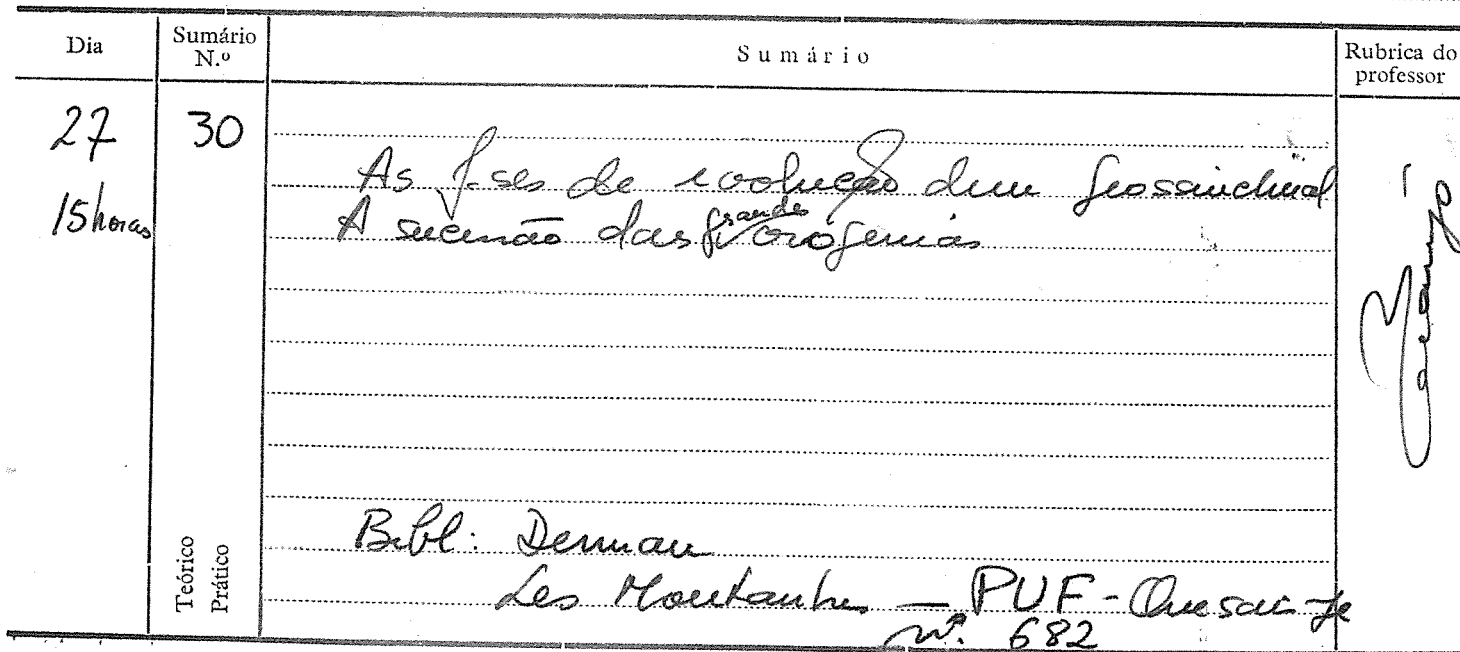 Dia
Sumário N.º
Sumário
Rubrica do professor
27
30
15 horas
As fases de evolução dum geossinclinal
A sucessão das grandes orogenias
Teórico
Prático
Bibl: Derruau
Les Montanhes — PUF - Que sais-je
nº. 682